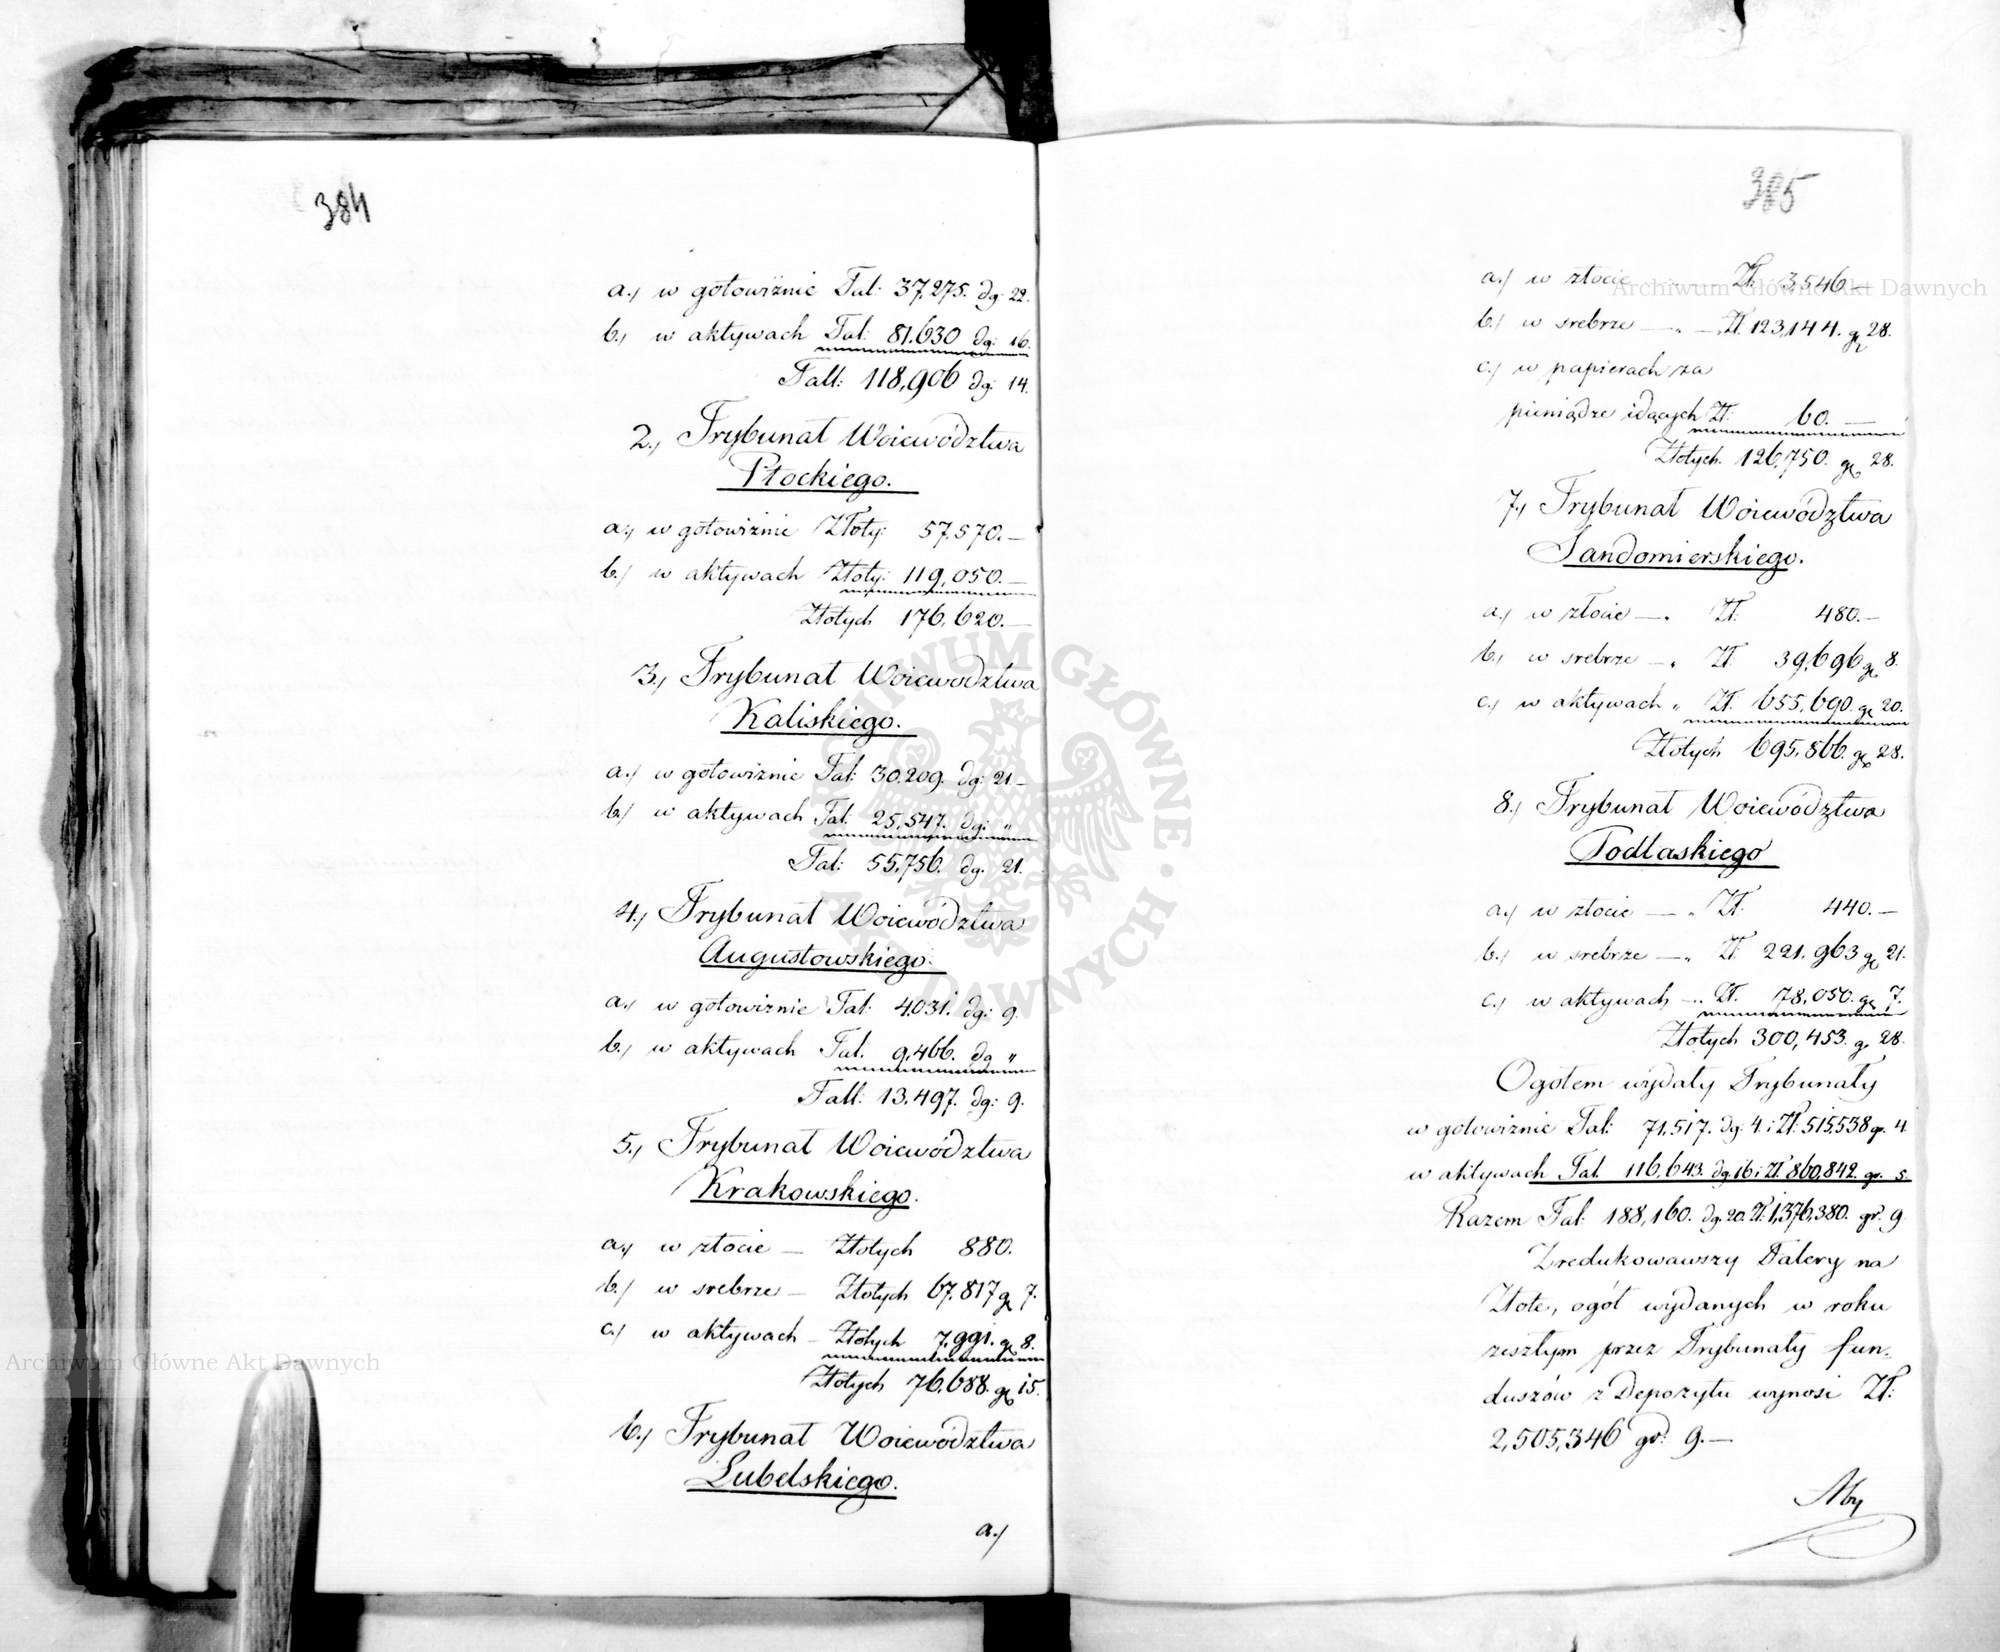 384
a.) w gotowiźnie Tal: 37,275. dg: 22.
b.) w aktywach Tal: 81.630 dg: 16.
Tall: 118,906 dg: 14.
2.) Trybunał Woiewództwa
Płockiego.
a.) w gotowiźnie Złoty: 57,570.—
b.) w aktywach Złoty: 119,050.—
Złotych 176,620.—
3.) Trybunał Woiewództwa
Kaliskiego.
a.) w gotowiznie Tal: 30.209. dg: 21—
b.) w aktywach Tal: 25,547. dg: „
Tal: 55,756. dg. 21.
4.) Trybunał Woiewództwa
Augustowskiego.
a.) w gotowiznie Tal: 4.031. dg: 9.
b.) w aktywach Tal. 9,466. dg „
Tall: 13,497. dg: 9.
5.) Trybunał Woiewództwa
Krakowskiego.
a.) w złocie — Złotych 880.
b.) w srebrze — Złotych 67.817 gr 7.
c.) w aktywach — Złotych 7,991. gr 8.
Złotych 76,688. gr 15.
6.) Trybunał Woiewództwa
Lubelskiego.
a.)
385
a.) w złocie Zł: 3,546—
b.) w srebrze — „ — Zł. 123,144. gr 28.
c.) w papierach za
pieniądze idących Zł: 60. —
Złotych. 126,750. gr 28.
7.) Trybunał Woiewództwa
Sandomierskiego.
a.) w złocie — . Zł: 480.—
b.) w srebrze — „ Zł 39,696 gr 8.
c.) w aktywach „ Zł. 655,690. gr 20.
Złotych 695,866. gr 28.
8.) Trybunał Woiewództwa
Podlaskiego
a.) w złocie — „ Zł: 440.—
b.) w srebrze — „ Zł: 221,963 gr 21.
c.) w aktywach — „ Zł. 78,050. gr 7.
Złotych 300,453. gr 28.
Ogółem wydały Trybunały
w gotowiznie Tal: 71,517. dg: 4. i Zł. 515,538 gr. 4
w aktywach Tal. 116,643. dg. 16 i Zł 860,842. gr. 5.
Razem Tal: 188,160. dg. 20. Zł: 1,376,380. gr. 9
Zredukowawszy Talery na
Złote, ogół wydanych w roku
zeszłym przez Trybunały fun-
duszów z Depozytu wynosi Zł:
2,505,346 gr: 9.—
Aby
Archiwum Główne Akt Dawnych
Archiwum Główne Akt Dawnych
ARCHIWUM GŁÓWNE · AKT DAWNYCH ·